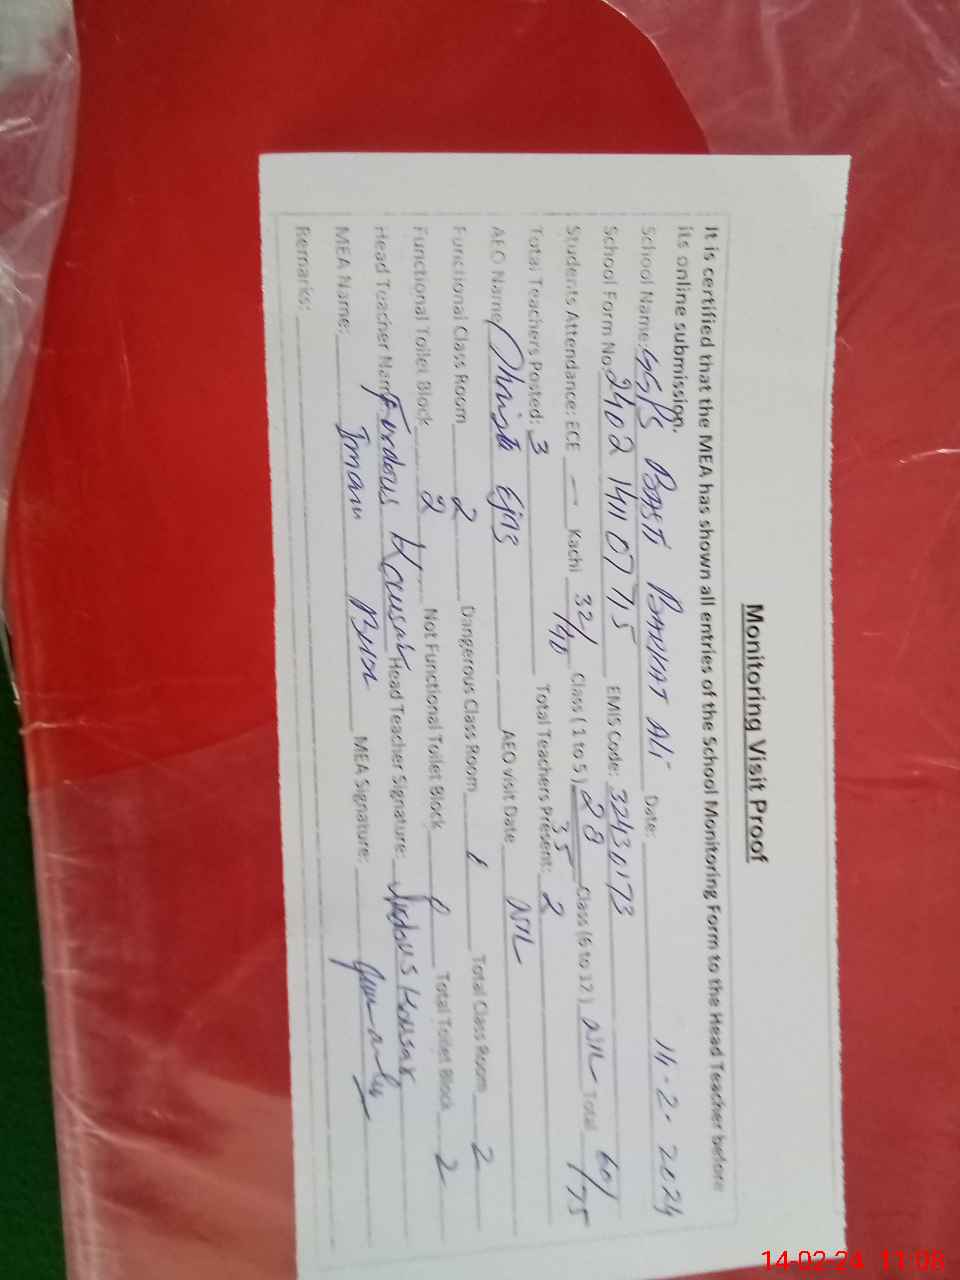 Monitoring Visit Proof
It is certified that the MEA has shown all entries of the School Monitoring Form to the Head Teacher before
its online submission.
School Name: GGPS BASTI BARKAT ALI Date: 14-2-2024
School Form No: 2402 1411 0715 EMIS Code: 32430173
Students Attendance: ECE — Kachi 32/40 Class (1 to 5) 28/35 Class (6 to 12) NIL Total 60/75
Total Teachers Posted: 3 Total Teachers Present: 2
AEO Name Ejas AEO visit Date NIL
Functional Class Room 2 Dangerous Class Room Total Class Room 2
Functional Toilet Block 2 Not Functional Toilet Block Total Toilet Block 2
Head Teacher Name: Firdous Kousar Head Teacher Signature: Firdous Kousar
MEA Name: Imam Bux MEA Signature:
Remarks:
14-02-24 11:08